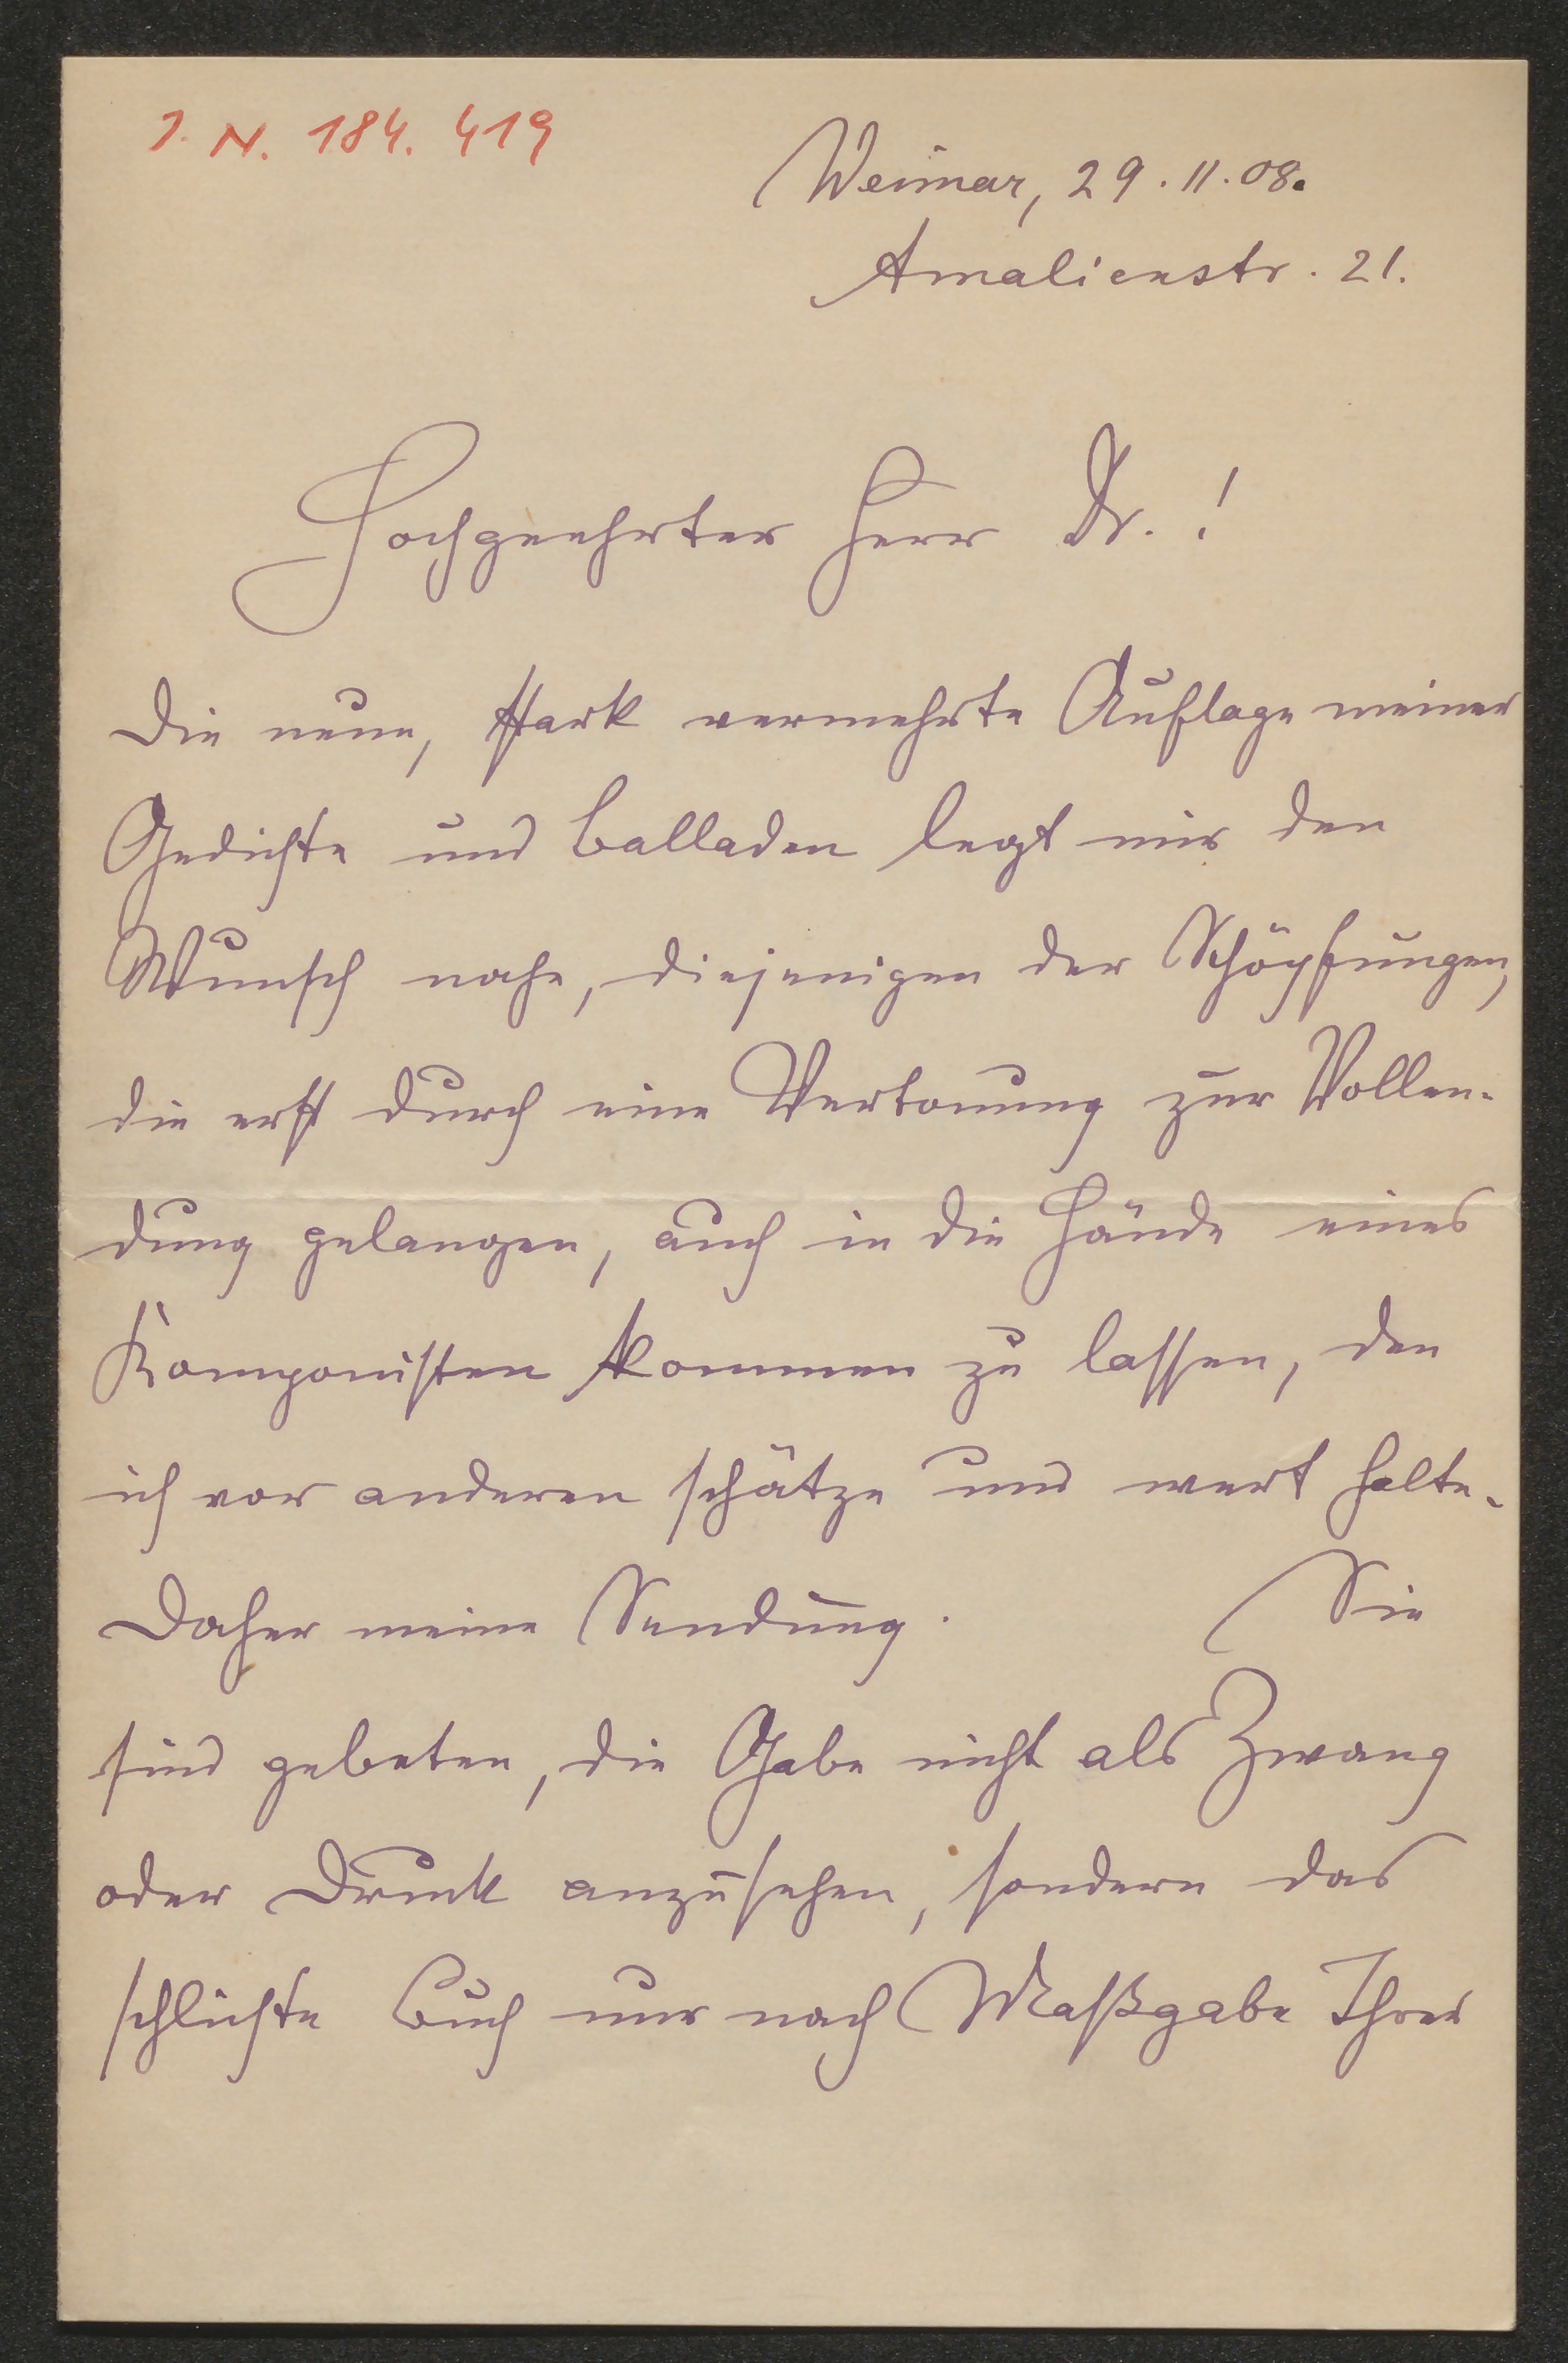 J. N. 184.419
Weimar, 29.11.08.
Amalienstr. 21.
Hochgeehrter Herr Dr.!
Die neue, stark vermehrte Auflage meiner
Gedichte und Balladen legt mir den
Wunsch nahe, diejenigen der Schöpfungen,
die erst durch eine Vertonung zur Vollen-
dung gelangen, auch in die Hände eines
Komponisten kommen zu lassen, den
ich vor anderen schätze und wert halte.
Daher meine Sendung. Sie
sind gebeten, die Gabe nicht als Zwang
oder Druck anzusehen, sondern das
schlichte Buch nur nach Maßgabe Ihrer